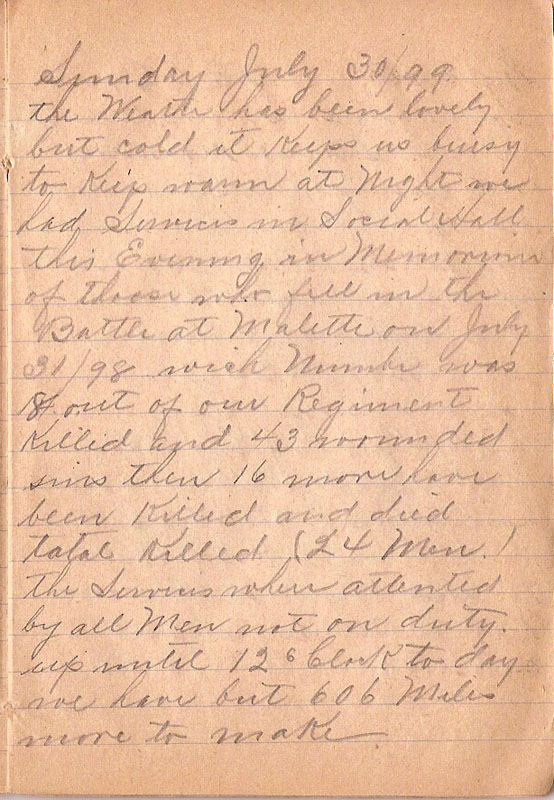 Sunday July 30/99
the Weather has been lovely
but cold it Keeps us buisy
to Keep warm at Night we
had Services in Social Hall
this Evening in Memorium
of those who fell in the
Battle at Malette on July
31/98 wich Number was
8 out of our Regiment
Killed and 43 wounded
sins then 16 more have
been Killed and died
total Killed (24 Men.)
the Services wher attented
by all Men not on duty.
up until 12 o Clock to day
we have but 606 Miles
more to make